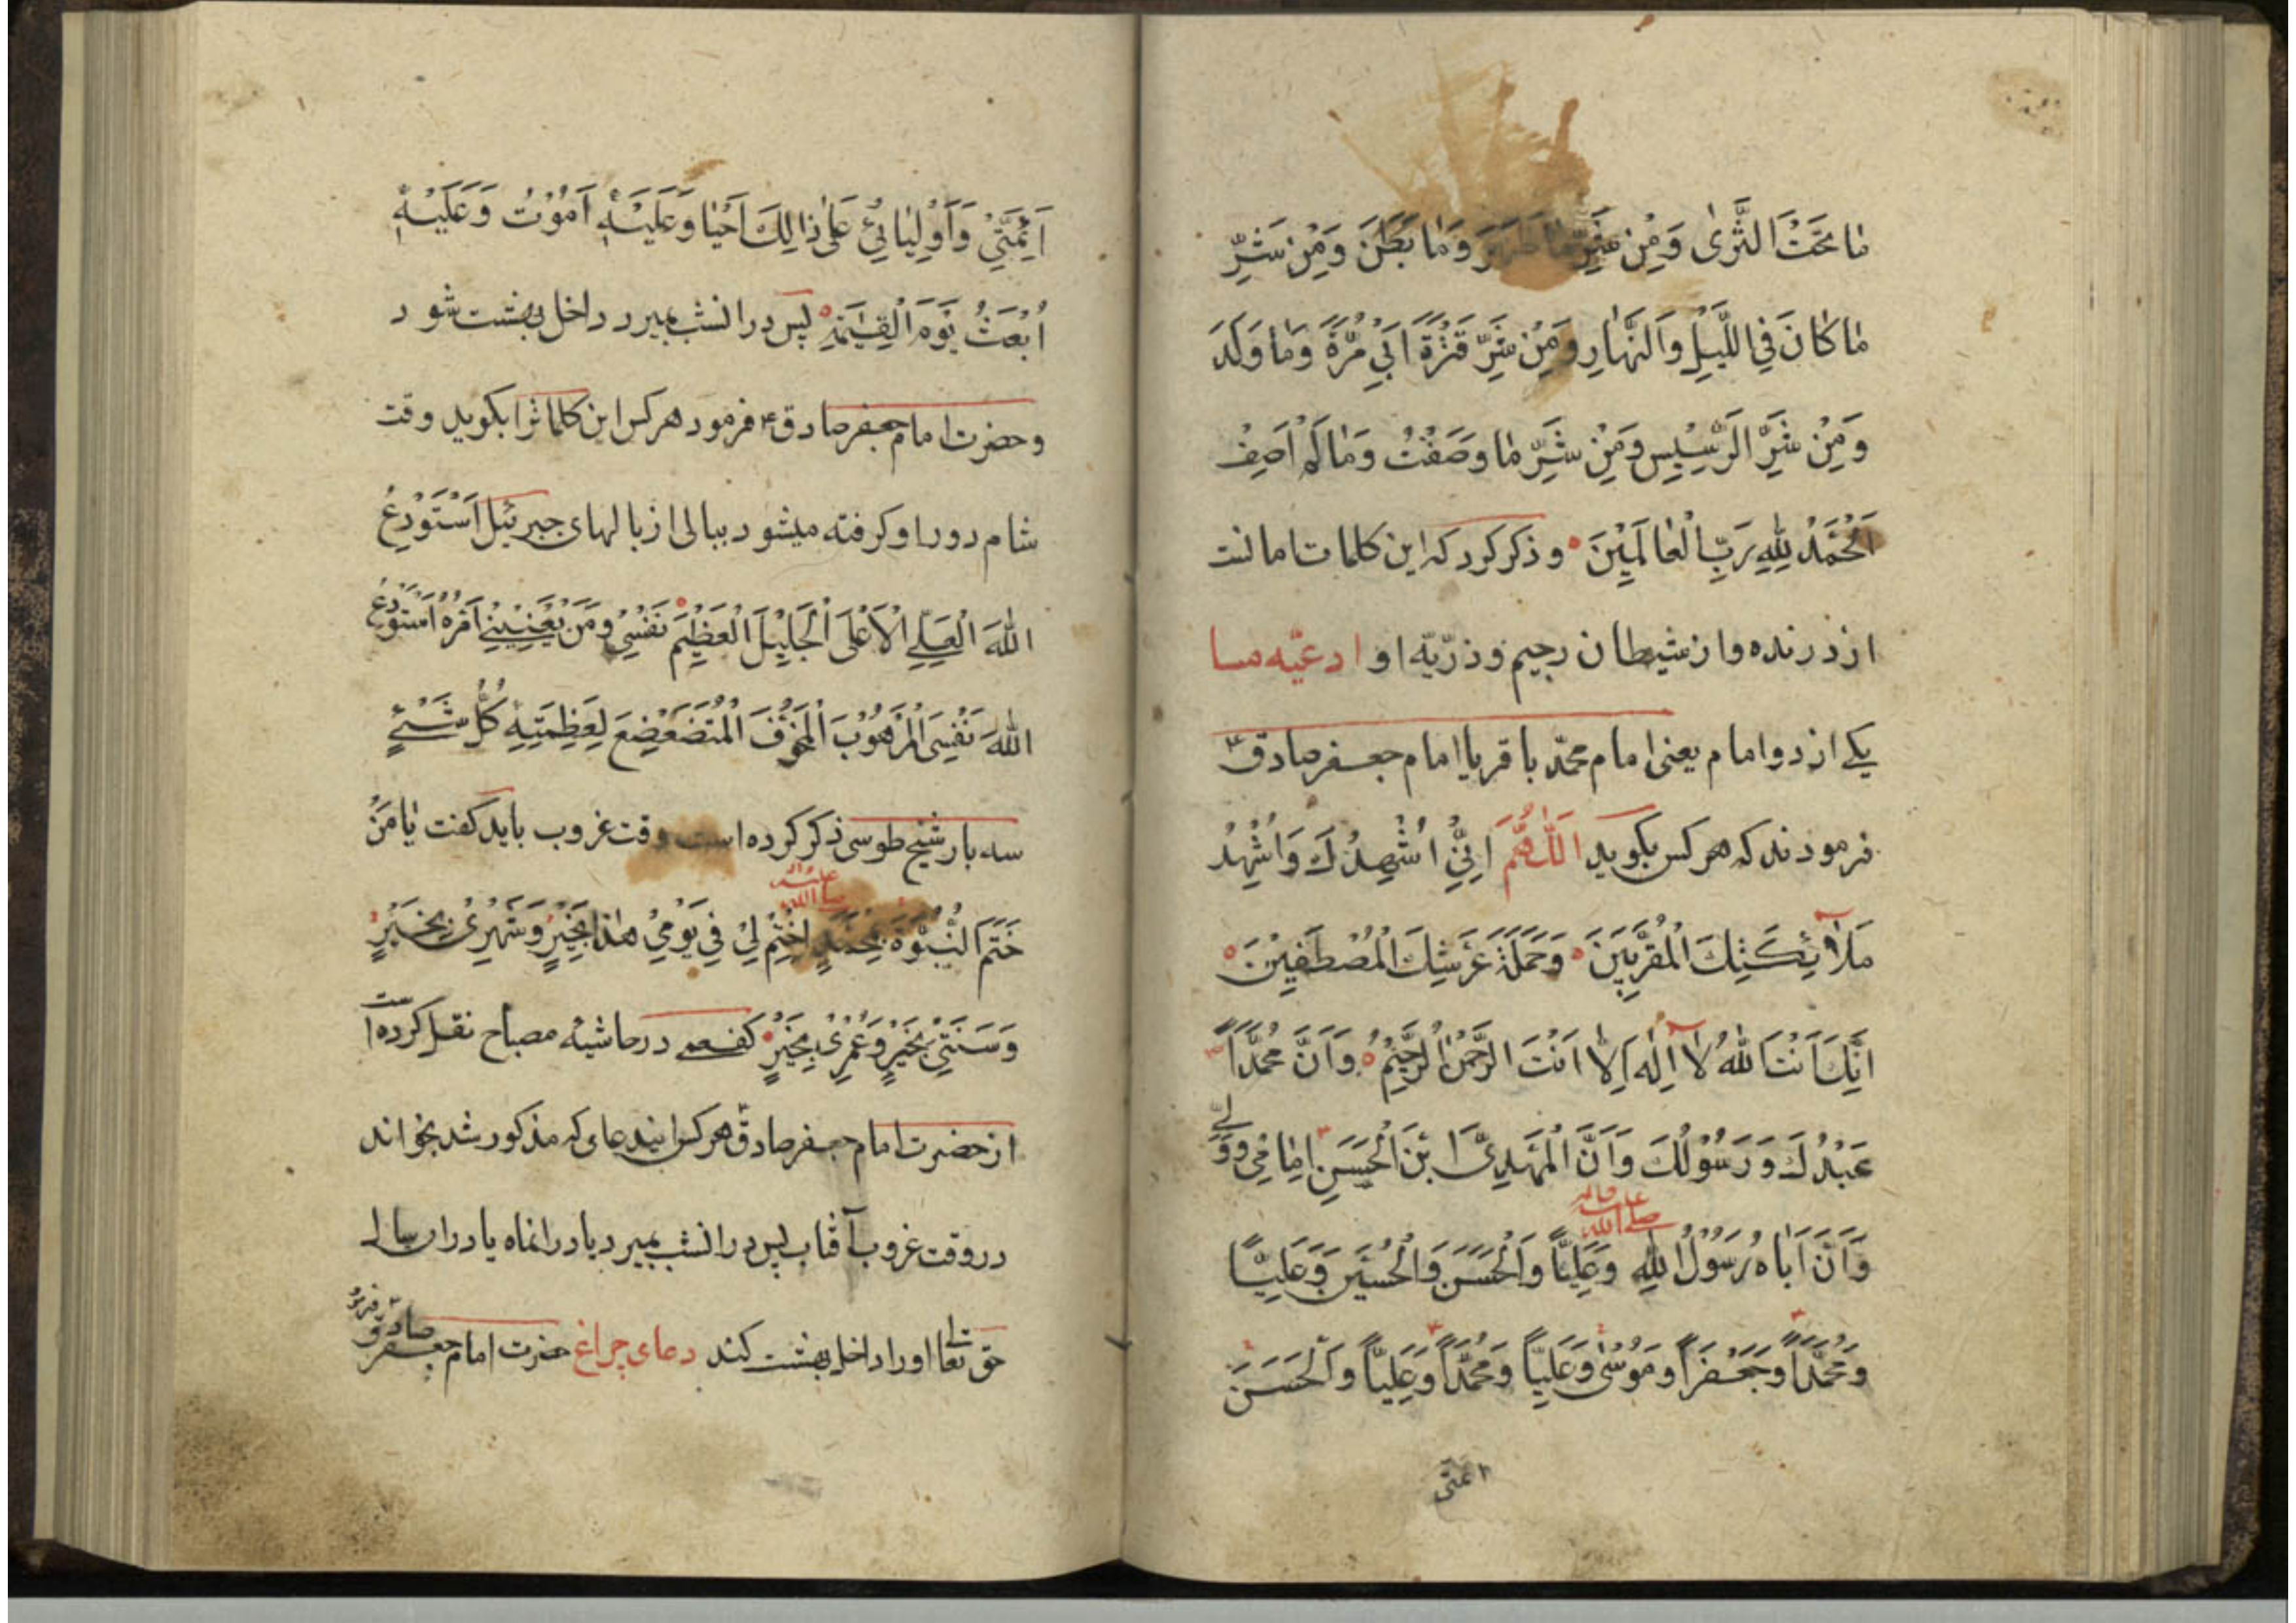 مٰا تَحْتَ الثَّرىٰ وَمِنْ شَرِّ مٰا ظَهَرَ وَمٰا بَطَنَ وَمِنْ شَرِّ
مٰا كٰانَ فِي اللَّيْلِ وَالنَّهٰارِ وَمِنْ شَرِّ قَتْرَةَ اَبِي مُرَّةَ وَمٰا وَلَدَ
وَمِنْ شَرِّ الرَّسِيْسِ وَمِنْ شَرِّ مٰا وَصَفْتُ وَمٰا لَمْ اَصِفْ
اَلْحَمْدُ لِلّٰهِ رَبِّ الْعٰالَمِيْنَ وذكر كرد كه اين كلمات امانست
از درنده واز شيطان رجيم وذرّيّه او ادعيّه مسا
يكى از دو امام يعنى امام محمّد باقر يا امام جعفر صادق
فرمودند كه هر كس بكويد اَللّٰهُمَّ اِنِّيْ اُشْهِدُكَ وَاُشْهِدُ
مَلآئِكَتِكَ الْمُقَرَّبِيْنَ وَحَمَلَةَ عَرْشِكَ الْمُصْطَفِيْنَ
اِنَّكَ اَنْتَ اللهُ لاٰ اِلٰهَ اِلاّٰ اَنْتَ الرَّحْمٰنُ الرَّحِيْمُ وَاَنَّ مُحَمَّداً
عَبْدُكَ وَرَسُوْلُكَ وَاَنَّ الْمَهْدِيَّ ابْنَ الْحَسَنِ اِمٰامِيْ وَوَلِيّ
وَاَنَّ اَبٰاهُ رَسُوْلُ اللهِ صلى الله عليه واله وَعَلِيّاً وَالْحَسَنَ وَالْحُسَيْنَ وَعَلِيّاً
وَمُحَمَّداً وَجَعْفَراً وَمُوْسٰى وَعَلِيّاً وَمُحَمَّداً وَعَلِيّاً وَالْحَسَنَ
ائمتى
اَئِمَّتِيْ وَاَوْلِيٰائِيْ عَلىٰ ذٰالِكَ اَحْيٰا وَعَلَيْهِ اَمُوْتُ وَعَلَيْهِ
اُبْعَثُ يَوْمَ الْقِيٰمَةِ پس در انشب بميرد داخل بهشت شود
وحضرت امام جعفر صادق ع فرمود هر كس اين كلماترا بكويد وقت
شام دور او كرفته ميشود ببالى از بالهاى جبرئيل اَسْتَوْدِعُ
اللهَ الْعَلِيَّ الْاَعْلَى الْجَلِيْلَ الْعَظِيْمَ نَفْسِيْ وَمَنْ يَعْنِيْنِيْ اَمْرُهُ اَسْتَوْدِعُ
اللهَ نَفْسِيَ الْمَرْهُوْبَ الْمَخُوْفَ الْمُتَضَعْضِعَ لِعَظِمَتِهِ كُلُّ شَيْءٍ
سه بار شيخ طوسى ذكر كرده است وقت غروب بايد كفت يٰا مَنْ
خَتَمَ النُّبُوَّةَ بِمُحَمَّدٍ صلى الله عليه واله اِخْتِمْ لِيْ فِي يَوْمِيْ هٰذٰا بِخَيْرٍ وَشَهْرِيْ بِخَيْرٍ
وَسَنَتِيْ بِخَيْرٍ وَعُمْرِيْ بِخَيْرٍ كفعمى در حاشيه مصباح نقل كرده است
از حضرت امام جعفر صادق هر كس ايندعاى كه مذكور شد بخواند
در وقت غروب آفتاب پس در انشب بميرد يا در انماه يا در ان سال
حق تعالى او را داخل بهشت كند دعاى چراغ حضرت امام جعفر صادق ع فرمو